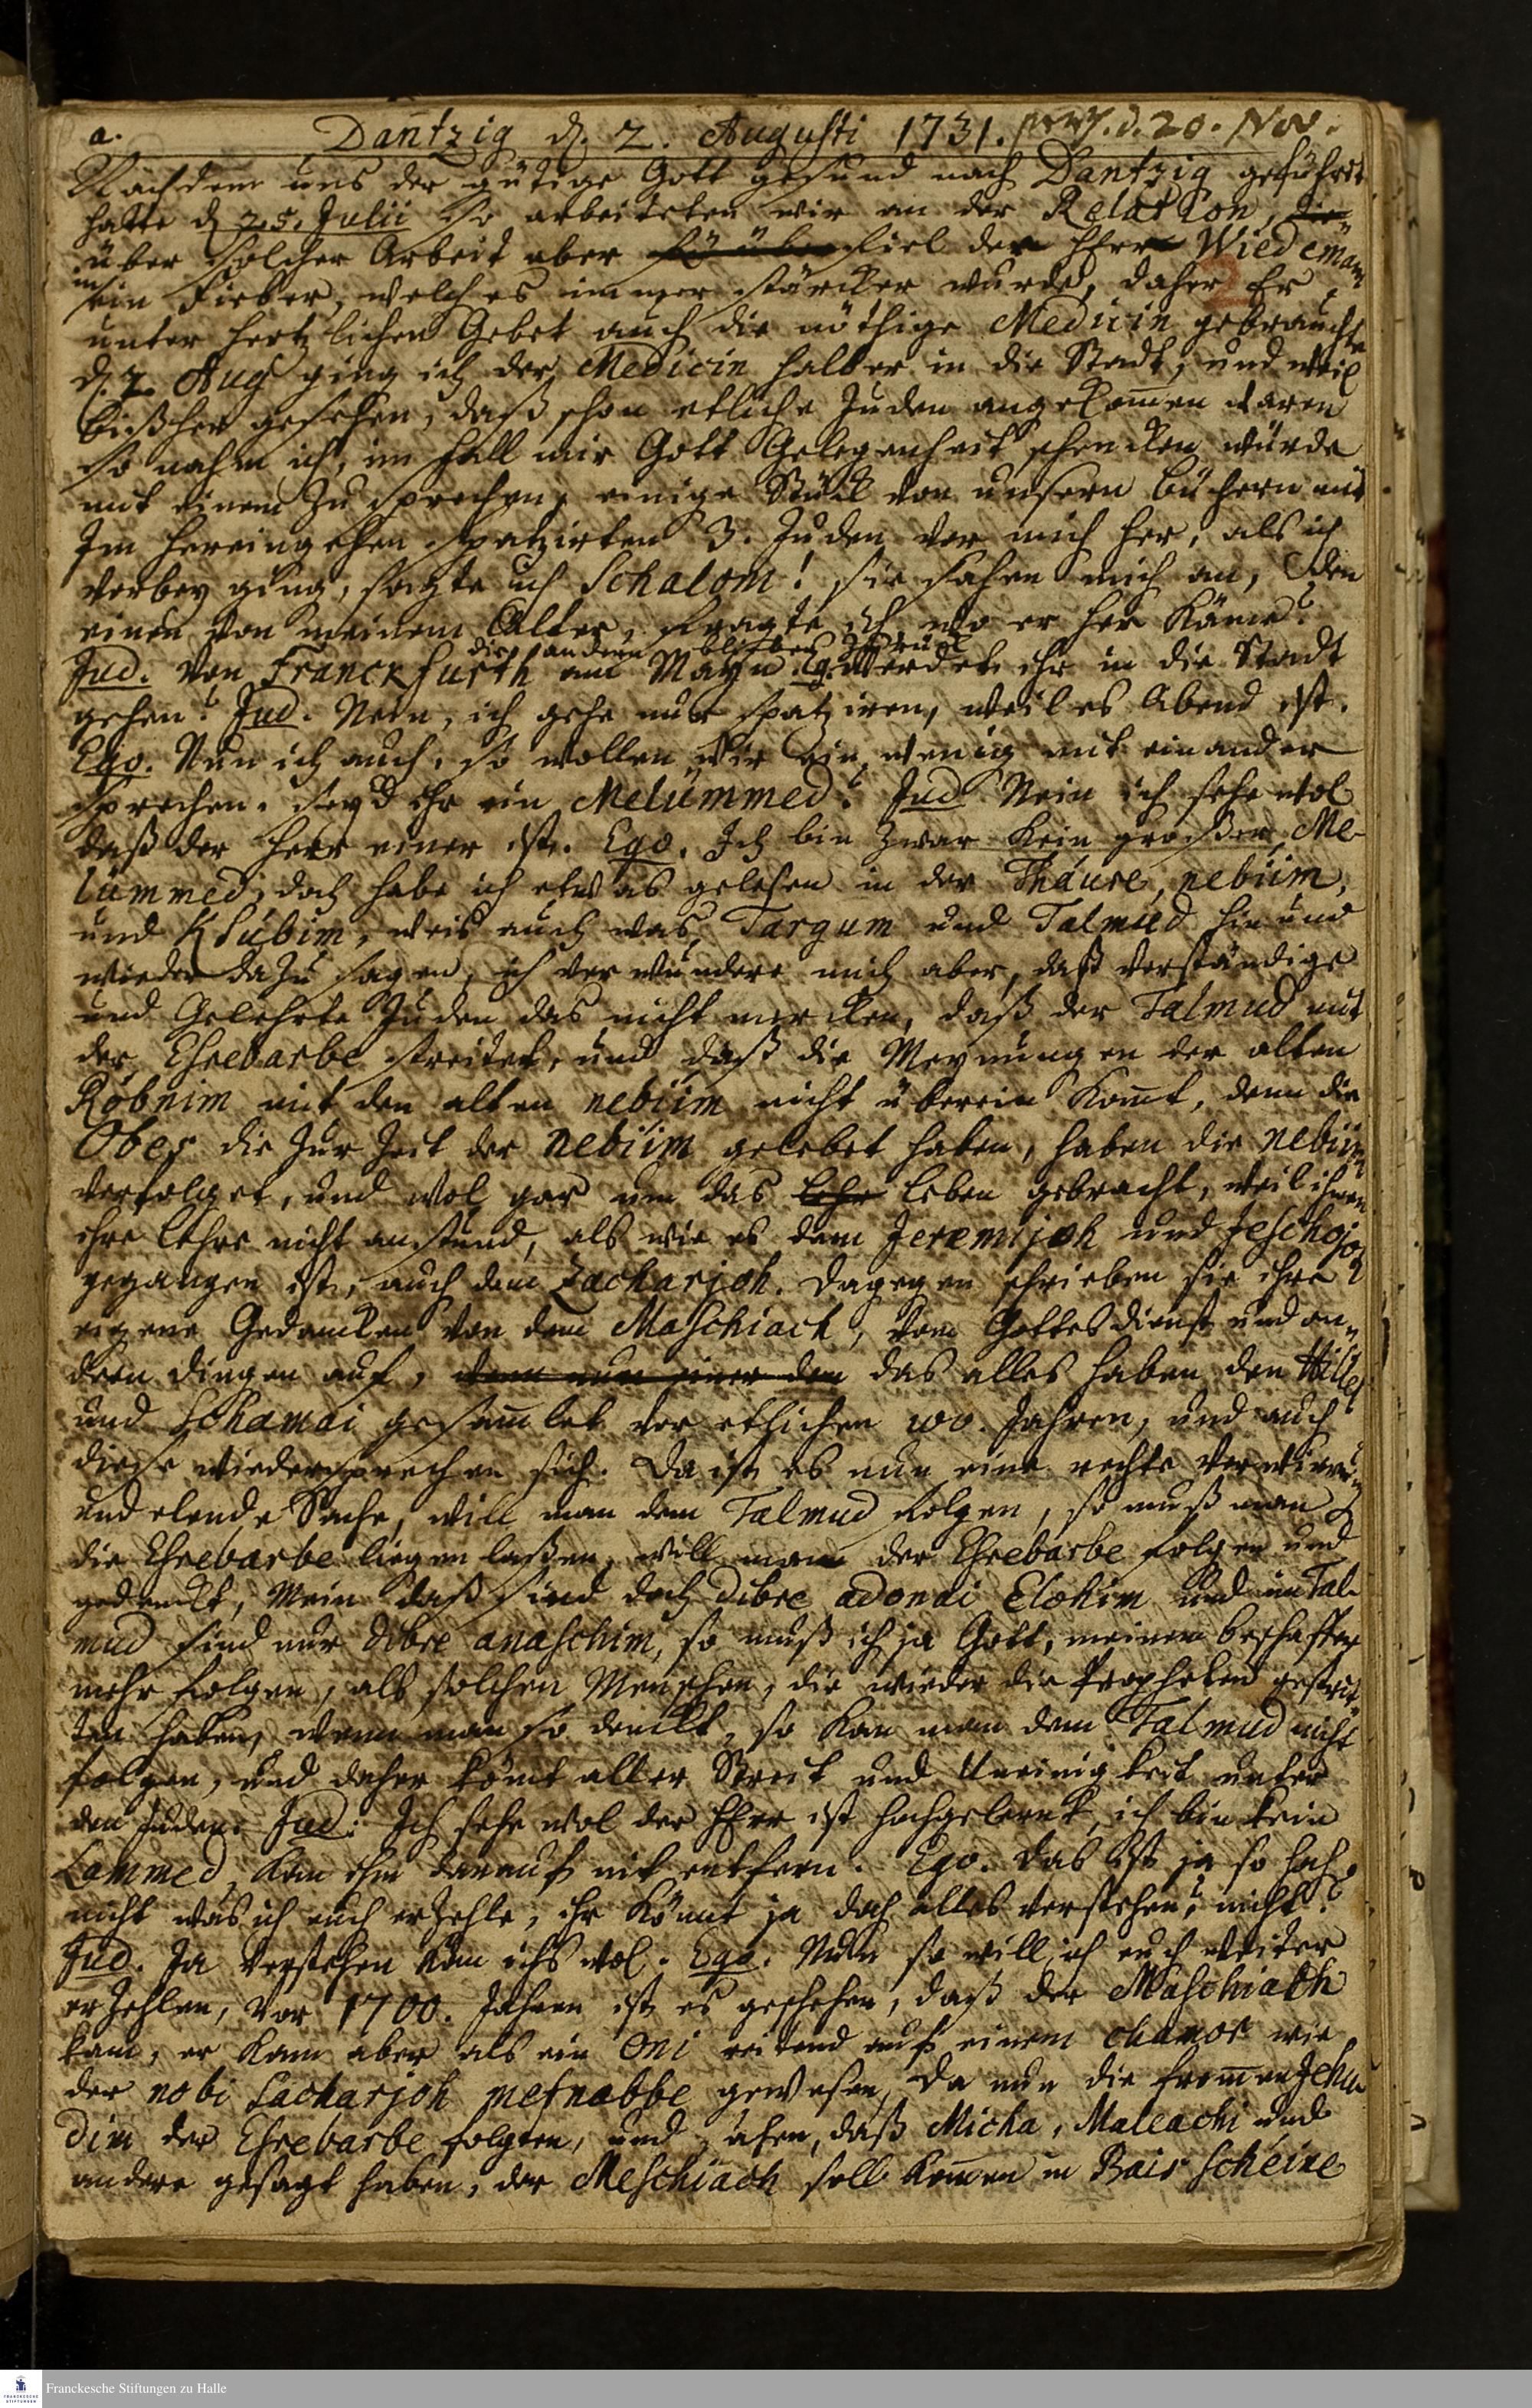 a. Dantzig d. 2. Augusti 1731. d. 20. Nov.
Nachdem uns der gütige Gott gesund nach Dantzig geführet
hatte d 25. Julii so arbeiteten wir an der Relation,
über solcher Arbeit aber fiel der HErr Wiedemann
in ein Fieber, welches immer stärcker wurde, daher Er
unter hertzlichen Gebet auch die nöthige Medicin gebrauchte
d. 2. Aug ging ich der Medicin halber in die Stadt, und weil
bißher gesehen, daß schon etliche Juden angekom̄en waren
so nahm ich, im fall mir Gott Gelegenheit schencken würde
mit einem zu sprechen, einige Stück von unsern büchern mit
Im hereingehen spatzirten 3. Juden vor mich her, als ich
vorbey ging, sagte ich Schalom! sie sahen mich an, den
einen von meinem Alter, fragte ich wo er her käme?
die andern blieben zurück
Jud. Von Franckfurth am Mayn. Eg. Werdet ihr in die Stadt
gehen? Jud. Nein, ich gehe nur spatziren, weil es Abend ist.
Ego. Nun ich auch, so wollen wir ein wenig mit einander
sprechen. Seyd ihr ein Melummed? Jud Nein ich sehe wol
daß der Herr einer ist. Ego. Ich bin zwar kein großer Me-
lummed, doch habe ich etwas gelesen in der Tháure, nebiim,
und Ksubim, weis auch was Targum und Talmud hin und
wieder dazu sagen, ich verwundere mich aber, daß verständige
und Gelehrte Juden das nicht mercken, daß der Talmud mit
der Esrebarbe streitet, und daß die Meynungen der alten
Robnim mit den alten nebiim nicht überein kom̄t, denn die
Obes die zur Zeit der nebiim gelebet haben, haben die nebiim
verfolget, und wol gar um das lehr leben gebracht, weil ihnen
ihre lehre nicht anstund, als wie es dem Jeremijoh und Jeschojoh
gegangen ist, auch dem Zacharjoh. dagegen schrieben sie ihre
eigene Gedancken von dem Maschiach, vom Gottesdienst und an-
dern dingen auf, das alles haben den Hillel
und Schamai gesam̄let vor etlichen 100. Jahren, und auch
diese wiedersprechen sich. Da ist es nun eine rechte verwirrte
und elende Sache, will man dem Talmud folgen, so muß man
die Esrebarbe liegen laßen, will man der Esrebarbe folgen und
gedenckt, Mein daß sind doch dibre adonai Elohim und im Tal-
mud sind nur dibre anaschim, so muß ich ja Gott, meinem beschaffer
mehr folgen, als solchen Menschen, die wieder die Propheten gestrit-
ten haben, wenn man so denckt, so kan man dem Talmud nicht
folgen, und daher köm̄t aller Streit und Uneinigkeit unter
den Juden. Jud: Ich sehe wol der HErr ist hochgelernt, ich bin kein
Lammed, kan ihm darauf nit entfern. Ego. das ist ja so hoch
nicht was ich euch erzehle, ihr könnt ja doch alles verstehen, nicht?
Jud. Ja verstehen kan ichs wol. Ego. Nun so will ich euch weiter
erzehlen, Vor 1700. Jahren ist es geschehen, daß der Maschiach
kam, er kam aber als ein Oni reitend auf einem chamor wie
der nobi Sacharjoh mesnabbe gewesen, Da nun die from̄en Jehu-
dim der Esrebarbe folgten, und sahen, daß Micha, Maleachi und
andere gesagt haben, der Meschiach soll kom̄en in Bais scheine
Franckesche Stiftungen zu Halle